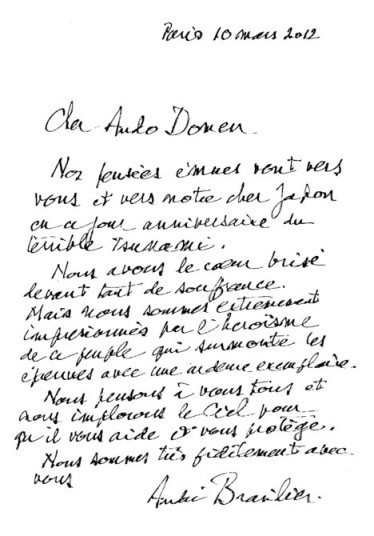 Paris 10 mars 2012
Cher Ando Domen
Nos pensées émues vont vers
vous et vers notre cher Japon
en ce jour anniversaire du
terrible Tsunami.
Nous avons le cœur brisé
devant tant de souffrance.
Mais nous sommes extrêmement
impressionnés par l'héroïsme
de ce peuple qui surmonte les
épreuves avec une ardeur exemplaire.
Nous pensons à vous tous et
nous implorons le Ciel pour
qu'il vous aide et vous protège.
Nous sommes très fidèlement avec
vous
André Brasilier.